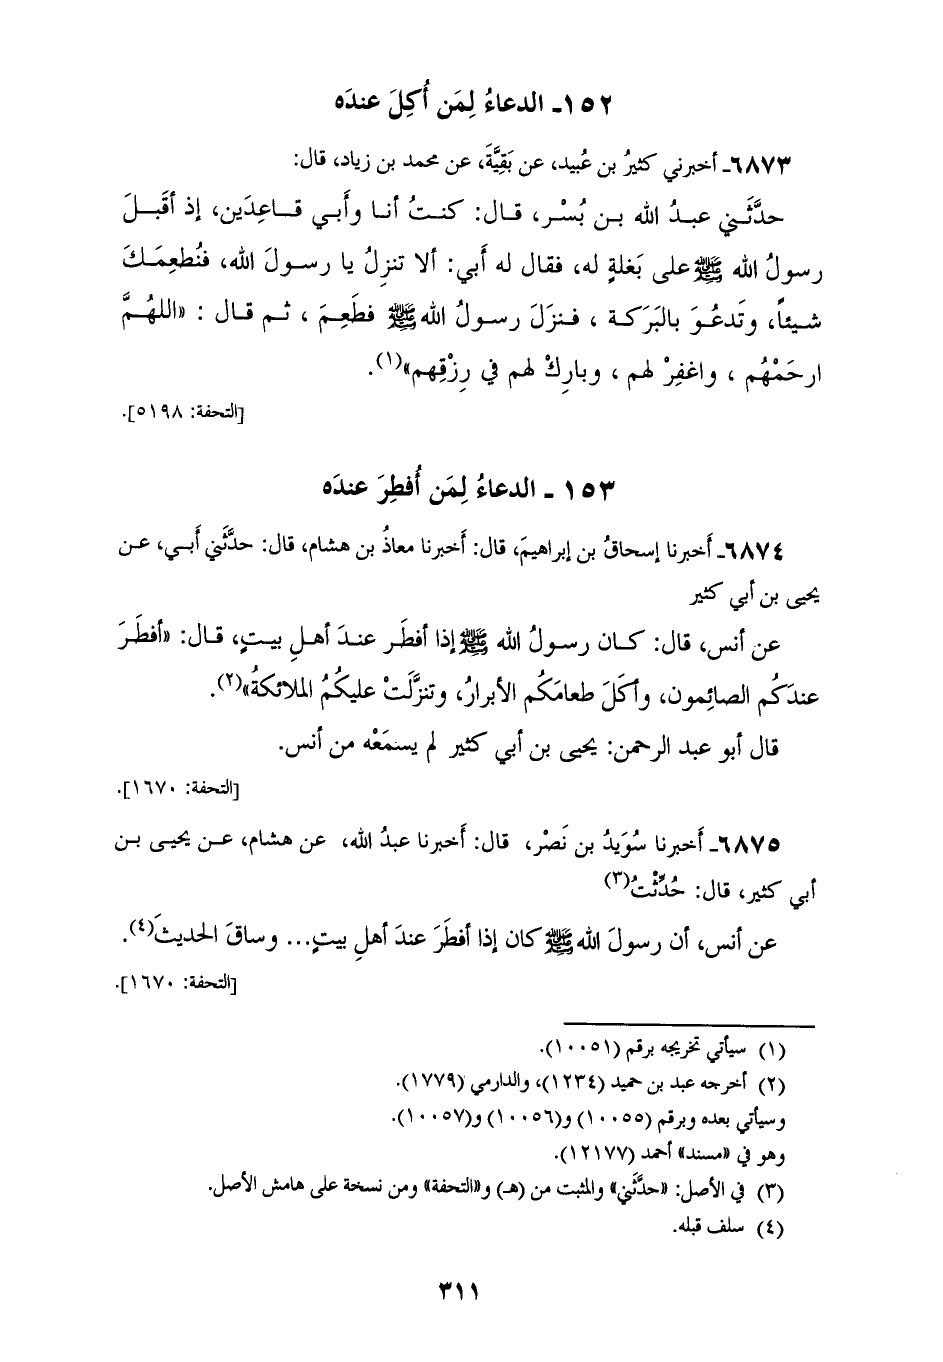 ١٥٢ـ الدعاءُ لِمَن أُكِلَ عندَه
٦٨٧٣ـ أخبرني كثيرُ بن عُبيد، عن بَقِيَّةَ، عن محمد بن زياد، قال:
حدَّثَني عبدُ الله بن بُسْر، قال: كنتُ أنا وأَبي قاعِدَين، إذ أقبَلَ
رسولُ الله ﷺ على بَغلةٍ له، فقال له أَبي: ألا تنزِلُ يا رسولَ الله، فنُطعِمَكَ
شيئاً، وتَدعُوَ بالبَرَكة ، فنزَلَ رسولُ الله ﷺ فطَعِمَ ، ثم قال : «اللهُمَّ
ارحَمْهُم ، واغفِرْ لهم ، وبارِكْ لهم في رِزْقِهم»(١).
[التحفة: ٥١٩٨].
١٥٣ ـ الدعاءُ لِمَن أُفطِرَ عندَه
٦٨٧٤ـ أَخبرنا إسحاقُ بن إبراهيمَ، قال: أَخبرنا معاذُ بن هشام، قال: حدَّثَني أَبي، عن
يحيى بن أبي كثير
عن أنس، قال: كان رسولُ الله ﷺ إذا أفطَر عندَ أهلِ بيتٍ، قال: «أفطَرَ
عندَكُم الصائِمون، وأكَلَ طعامَكُم الأبرارُ، وتنزَّلَتْ عليكُمُ الملائكةُ»(٢).
قال أبو عبد الرحمن: يحيى بن أبي كثير لم يسمَعْه من أنس.
[التحفة: ١٦٧٠].
٦٨٧٥ـ أَخبرنا سُوَيدُ بن نَصْر، قال: أَخبرنا عبدُ الله، عن هشام، عن يحيى بن
أبي كثير، قال: حُدِّثْتُ(٣)
عن أنس، أن رسولَ الله ﷺ كان إذا أفطَرَ عندَ أهلِ بيتٍ... وساقَ الحديثَ(٤).
[التحفة: ١٦٧٠].
(١) سيأتي تخريجه برقم (١٠٠٥١).
(٢) أخرجه عبد بن حميد (١٢٣٤)، والدارمي (١٧٧٩).
وسيأتي بعده وبرقم (١٠٠٥٥) و(١٠٠٥٦) و(١٠٠٥٧).
وهو في «مسند» أحمد (١٢١٧٧).
(٣) في الأصل: «حدَّثَني» والمثبت من (هـ) و«التحفة» ومن نسخة على هامش الأصل.
(٤) سلف قبله.
٣١١